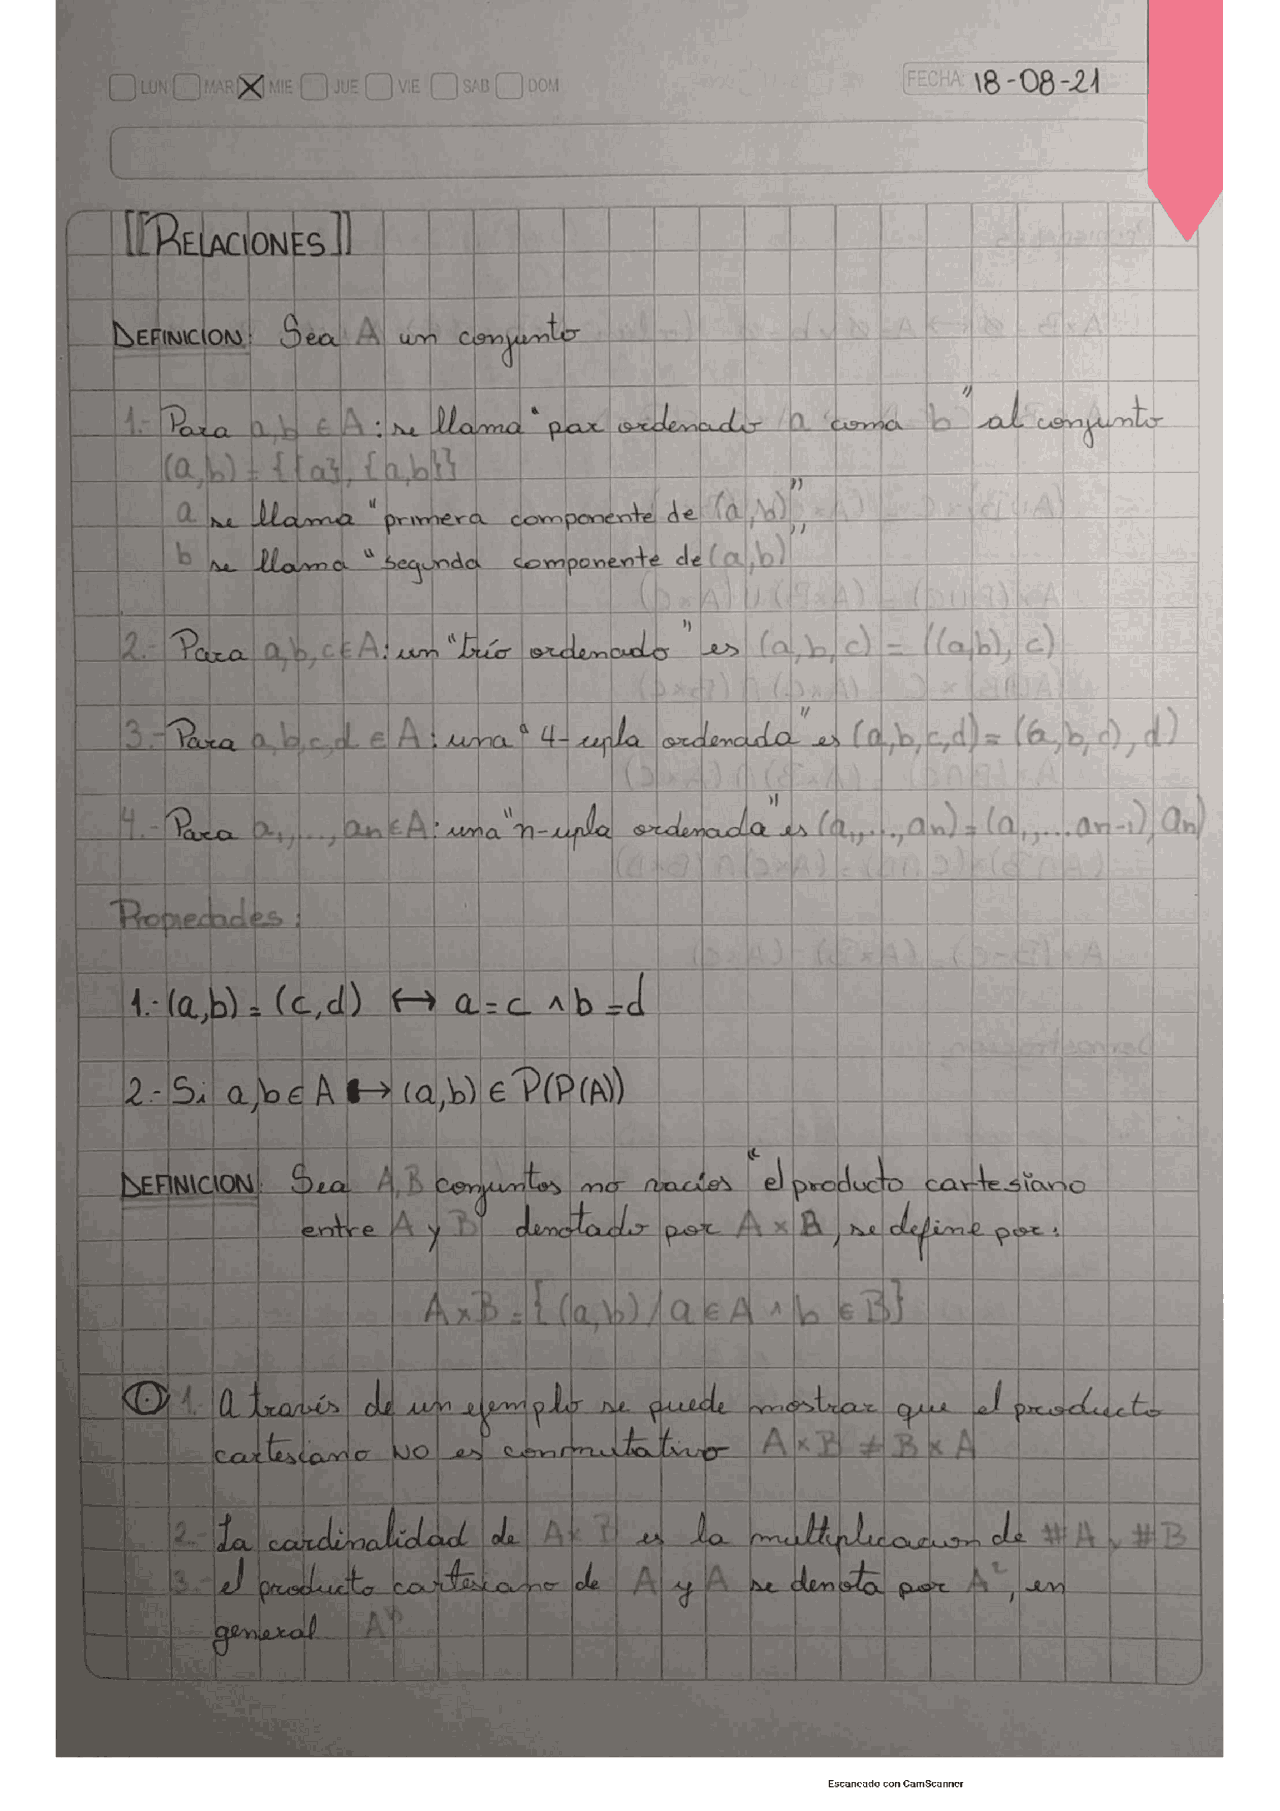 LUN MAR MIE JUE VIE SAB DOM FECHA: 18-08-21
[[RELACIONES]]
DEFINICION: Sea A un conjunto
1.- Para a,b ∈ A: se llama "par ordenado a coma b" al conjunto
(a,b) = {{a}, {a,b}}
a se llama "primera componente de (a,b)"
b se llama "segunda componente de (a,b)"
2.- Para a,b,c ∈ A: un "trío ordenado" es (a,b,c) = ((a,b), c)
3.- Para a,b,c,d ∈ A: una "4-upla ordenada" es (a,b,c,d) = ((a,b,c), d)
4.- Para a1,...,an ∈ A: una "n-upla ordenada" es (a1,...,an) = (a1,...an-1), an)
Propiedades:
1.- (a,b) = (c,d) ↔ a=c ∧ b=d
2.- Si a,b ∈ A ↔ (a,b) ∈ P(P(A))
DEFINICION: Sea A,B conjuntos no vacíos "el producto cartesiano
entre A y B" denotado por A x B, se define por:
A x B = {(a,b) / a ∈ A ∧ b ∈ B}
1. A través de un ejemplo se puede mostrar que el producto
cartesiano NO es conmutativo A x B ≠ B x A
2.- La cardinalidad de A x B es la multiplicacion de #A y #B
3.- el producto cartesiano de A y A se denota por A², en
general Aⁿ
Escaneado con CamScanner